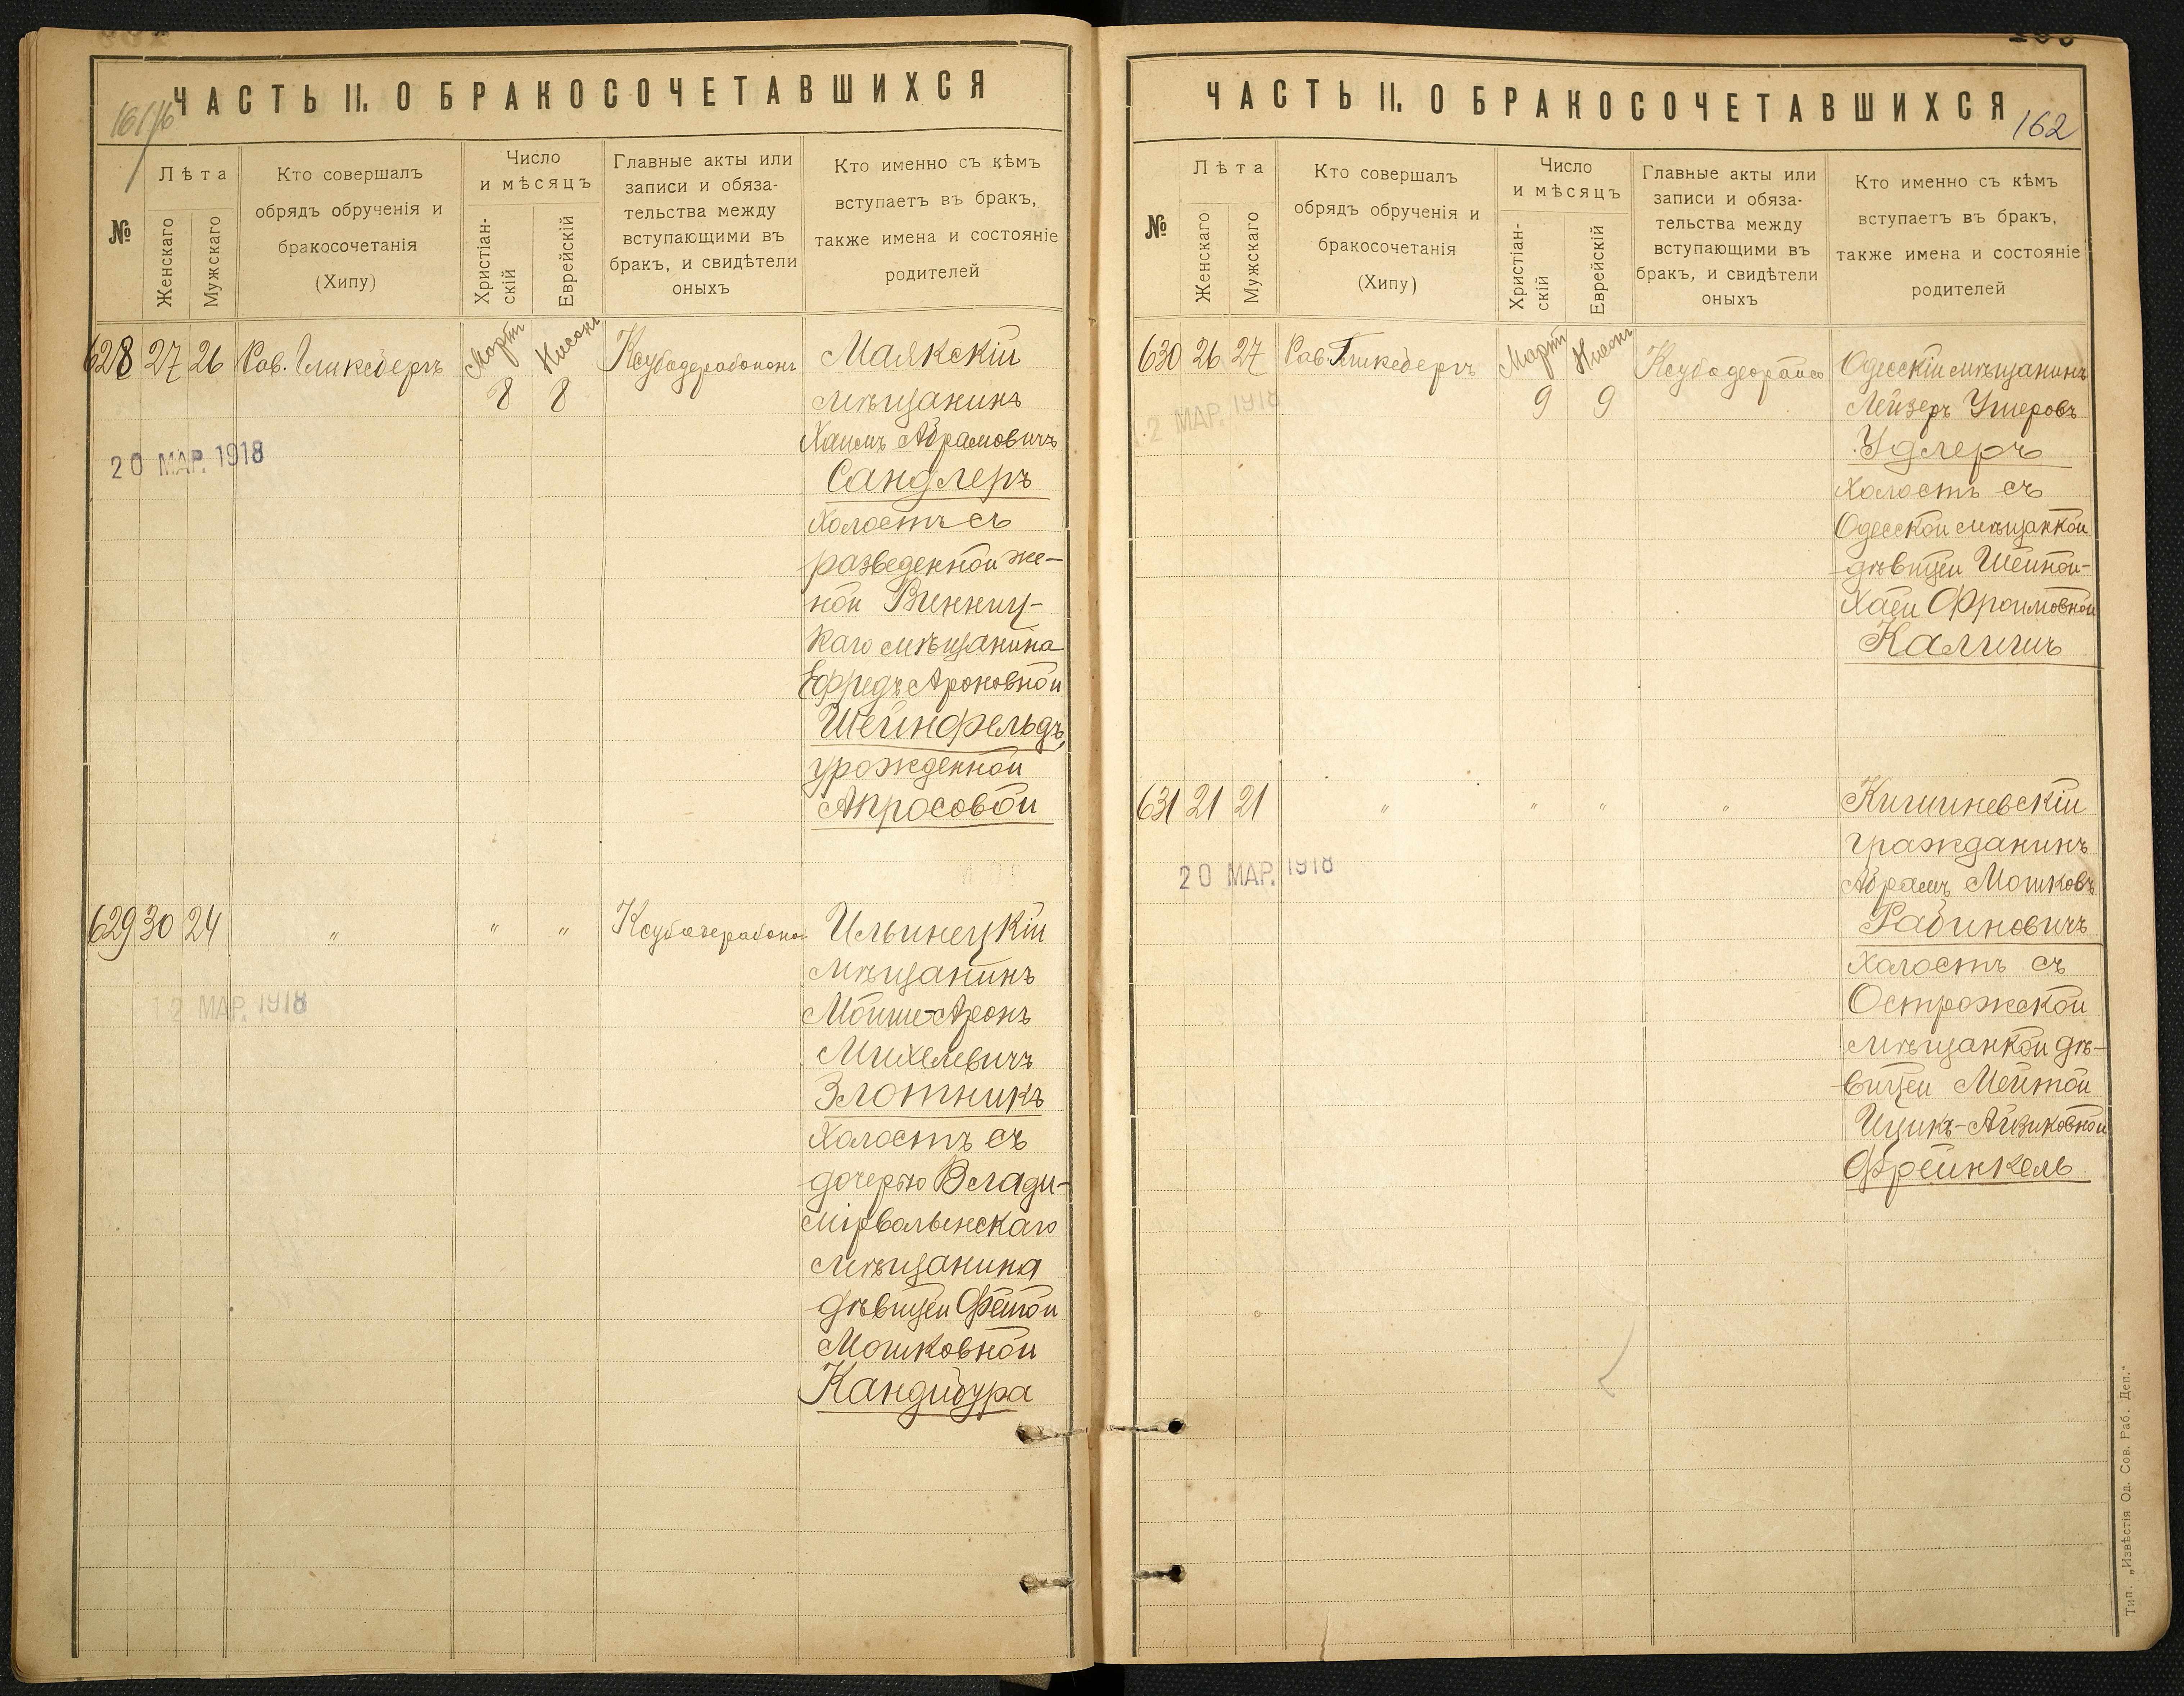 ЧАСТЬ II. О БРАКОСОЧЕТАВШИХСЯ
№
Лѣта
Женскаго
Мужскаго
Кто совершалъ
обрядъ обрученія и
бракосочетанія
(Хипу)
Число
и мѣсяцъ
Христіан-
скій
Еврейскій
Главные акты или
записи и обяза-
тельства между
вступающими въ
бракъ, и свидѣтели
оныхъ
Кто именно съ кѣмъ
вступаетъ въ бракъ,
также имена и состояніе
родителей
628 27 26 Рав. Гликсбергъ Мартъ 8 Нисонъ 8 Ксубадерабононъ Маякскій
мѣщанинъ
Хаимъ Абрамовичъ
20 МАР. 1918
Сандлеръ
холостъ съ
разведенной же-
ной Винниц-
каго мѣщанина
Ефредъ Ароновной
Шейнфельдъ,
урожденной
Апросовой
629 30 24 " " " Ксубадерабонон Ильинецкій
мѣщанинъ
12 МАР. 1918
Мойше-Аронъ
Михелевичъ
Злотникъ
холостъ съ
дочерью Влади-
мірволынскаго
мѣщанина
дѣвицей Фейгой
Мошковной
Кандибура
ЧАСТЬ II. О БРАКОСОЧЕТАВШИХСЯ
162
№
Лѣта
Женскаго
Мужскаго
Кто совершалъ
обрядъ обрученія и
бракосочетанія
(Хипу)
Число
и мѣсяцъ
Христіан-
скій
Еврейскій
Главные акты или
записи и обяза-
тельства между
вступающими въ
бракъ, и свидѣтели
оныхъ
Кто именно съ кѣмъ
вступаетъ въ бракъ,
также имена и состояніе
родителей
630 26 27 Рав. Гликсбергъ Мартъ 9 Нисонъ 9 Ксубадеорайсо Одесскій мѣщанинъ
12 МАР. 1918
Лейзеръ Ушеровъ
Удлеръ
холостъ съ
Одесской мѣщанкой
дѣвицей Шейной-
Хаей Фроимовной
Калишъ
631 21 21 " " " " Кишиневскій
гражданинъ
20 МАР. 1918
Абрамъ Мошковъ
Рабиновичъ
холостъ съ
Острожской
мѣщанкой дѣ-
вицей Мейтой
Ицикъ-Айзиковной
Френкель
Тип. „Извѣстія Од. Сов. Раб. Деп."